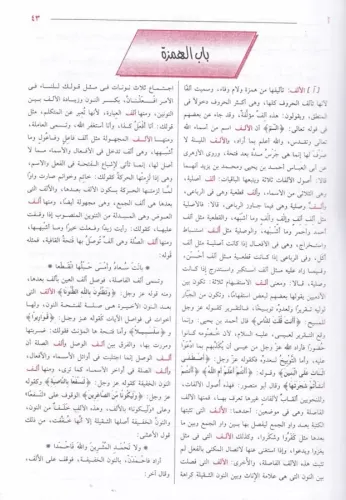 ٤٣
باب الهمزة
[أ] الألف: تأليفها من همزة ولام وفاء، وسميت ألفًا
لأنها تألف الحروف كلها، وهي أكثر الحروف دخولًا في
المنطق، ويقولون: هذه ألفٌ مؤلَّفة. وقد جاء عن بعضهم
في قوله تعالى: ﴿الم﴾ أن الألف اسم من أسماء الله
تعالى وتقدس، والله أعلم بما أراد، والألف اللينة لا
صرف لها إنما هي جَرْسُ مدّة بعد فتحة، وروى الأزهري
عن أبي العباس أحمد بن يحيى ومحمد بن يزيد أنهما
قالا: أصول الألفات ثلاثة ويتبعها الباقيات: ألف أصلية،
وهي في الثلاثي من الأسماء، وألف قطعية وهي في الرباعي،
وألف وصلية وهي فيما جاوز الرباعي، قالا: فالأصلية
مثل ألف أَلِفٍ وإلْفٍ وألفٍ وما أشبهه، والقطعية مثل ألف
أحمد وأحمر وما أشبهه، والوصلية مثل ألف استنباط
واستخراج، وهي في الأفعال إذا كانت
وفيما زاد عليه مثل ألف استكبر واستدرج إذا كانت
وصلية، قالا: ومعنى ألف الاستفهام ثلاثة: تكون بين
الآدميين يقولها بعضهم لبعض استفهامًا، وتكون من الجبّار
لوليه تقريرًا ولعدوّه توبيخًا، فالتقرير كقوله عز وجل
للمسيح: ﴿أأنت قلت للناس﴾ قال أحمد بن يحيى: وإنما
وقع التقرير لعيسى، عليه السلام، لأن خصومه كانوا
حضورًا فأراد الله عز وجل من عيسى أن يكذّبهم بما ادّعوا
عليه، وأما التوبيخ لعدوّه فكقوله عز وجل: ﴿أصطفى
البنات على البنين﴾ وقوله: ﴿أأنتم أعلم أم الله﴾ ﴿أأنتم
أنشأتم شجرتها﴾ وقال أبو منصور: فهذه أصول الألفات،
وللنحويين ألقابٌ لألفات غيرها تعرف بها، فمنها الألف
الفاصلة وهي في موضعين: أحدهما الألف التي تثبتها
الكتبة بعد واو الجمع ليفصل بها بين واو الجمع وبين ما
بعدها مثل كفَرُوا وشكَرُوا، وكذلك الألف التي في مثل
يغزوا ويدعوا، وإذا استغني عنها لاتصال المكني بالفعل لم
تثبت هذه الألف الفاصلة، والأخرى الألف التي فصلت
بين النون التي هي علامة الإناث وبين النون الثقيلة كراهة
اجتماع ثلاث نونات في مثل قولك للنساء في
الأمر افعلنانّ، بكسر النون وزيادة الألف بين
النونين، ومنها ألف العبارة، لأنها تُعبر عن المتكلم، مثل
قولك: أنا أفعلُ كذا، وأنا أستغفر الله، وتسمى العاملة،
ومنها الألف المجهولة مثل ألف فاعل وفاعول وما
أشبهها، وهي ألف تدخل في الأفعال والأسماء مما لا
أصل لها، إنما تأتي لإشباع الفتحة في الفعل والاسم،
وهي إذا لزمتها الحركةُ كقولك: خاتم وخواتم صارت واوًا
لما لزمتها الحركة بسكون الألف بعدها، والألف التي
بعدها هي ألف الجمع، وهي مجهولة أيضًا، ومنها ألف
العوض وهي المبدلة من التنوين المنصوب إذا وقفت
عليها كقولك: رأيت زيدًا وفعلت خيرًا وما أشبهها،
ومنها ألف الصلة وهي ألف توصل بها فتحة القافية، فمثله
قوله:
بانت سعاد وأمسى حبلها انقطعا
وتسمى ألف الفاصلة، فوصل ألف العين بألف بعدها،
ومنه قوله عز وجل: ﴿وتظنون بالله الظنونا﴾ الألف التي
بعد النون الأخيرة هي صلة لفتحة النون، ولها
أخوات في فواصل الآيات كقوله عز وجل: ﴿قواريرا﴾
و ﴿سلسبيلا﴾ وأما فتحة ها المؤنث فقولك: ضربتها
ومررت بها، والفرق بين ألف الوصل وألف الصلة أن
ألف الوصل إنما اجتلبت في أوائل الأسماء والأفعال،
وألف الصلة في أواخر الأسماء كما ترى، ومنها ألف
النون الخفيفة كقوله عز وجل: ﴿لنسفعا بالناصية﴾ وكقوله
عز وجل: ﴿وليكونا من الصاغرين﴾ الوقوف على لنسفعا
وعلى وليكونا بالألف، وهذه الألف خلف من النون،
والنون الخفيفة أصلها الثقيلة إلا أنها خُففت، من ذلك
قول الأعشى:
ولا تحمد المثرين والله فاحمدا
أراد فاحمدن، بالنون الخفيفة، فوقف على الألف،
وقال آخر: